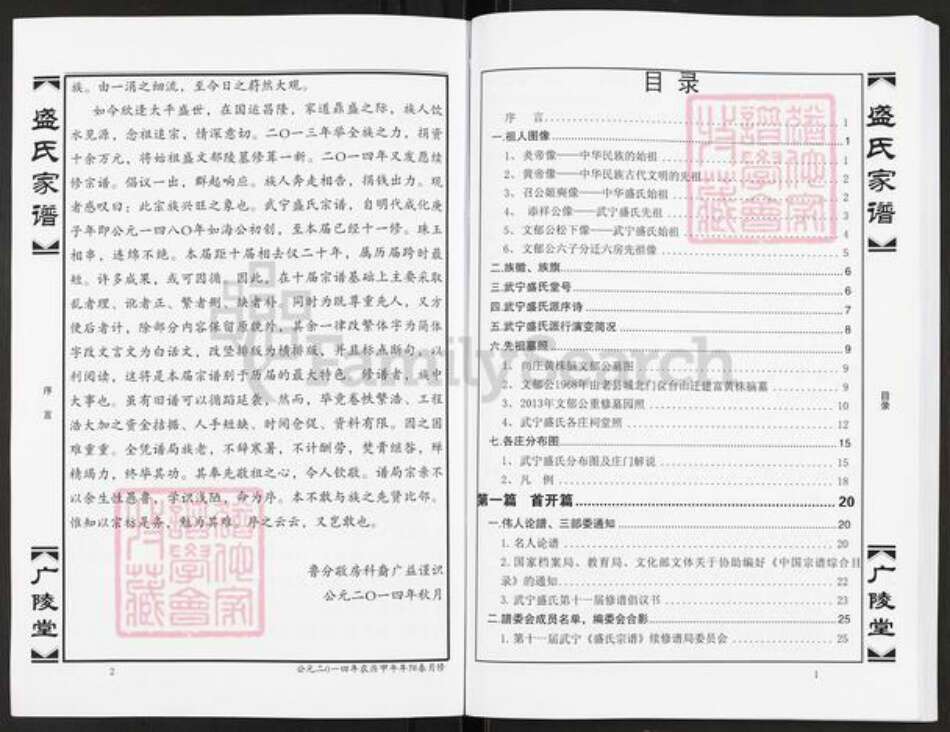 盛氏家谱
序言
广陵堂
族。由一涓之细流，至今日之蔚然大观。
如今欣逢太平盛世，在国运昌隆，家道鼎盛之际，族人饮
水见源，念祖追宗，情深意切。二〇一三年举全族之力，捐资
十余万元，将始祖盛文郁陵墓修葺一新。二〇一四年又发愿续
修宗谱。倡议一出，群起响应。族人奔走相告，捐钱出力。观
者感叹曰：此宗族兴旺之象也。武宁盛氏宗谱，自明代成化庚
子年即公元一四八〇年如海公初创，至本届已经十一修。珠玉
相串，连绵不绝。本届距十届相去仅二十年，属历届跨时最
短。许多成果，或可因循，因此，在十届宗谱基础上主要采取
乱者理、讹者正、繁者删、缺者补，同时为既尊重先人，又方
便后者计，除部分内容保留原貌外，其余一律改繁体字为简体
字改文言文为白话文，改竖排版为横排版，并且标点断句，以
利阅读，这将是本届宗谱别于历届的最大特色。修谱者，族中
大事也。虽有旧谱可以循蹈延袭，然而，毕竟卷帙繁浩、工程
浩大加之资金拮据、人手短缺、时间仓促、资料有限。因之困
难重重。全凭谱局族老，不辞寒暑，不计酬劳，焚膏继晷，殚
精竭力，终毕其功。其奉先敬祖之心，令人钦敬。谱局宗亲不
以余生性愚鲁，学识浅陋，命为序。本不敢与族之先贤比邻。
惟知以宗祊是务，勉为其难。序之云云，又岂敢也。
鲁分敬房科裔广益谨识
公元二〇一四年秋月
2
公元二〇一四年农历甲午年阳春月修
目录
序 言 1
一.祖人图像 1
1、炎帝像——中华民族的始祖 1
2、黄帝像——中华民族古代文明的先祖 2
3、召公姬奭像——中华盛氏始祖 2
4、 添祥公像——武宁盛氏先祖 3
5、文郁公松下像——武宁盛氏始祖 4
6、文郁公六子分迁六房先祖像 5
二.族徽、族旗 6
三.武宁盛氏堂号 6
四.武宁盛氏源序诗 7
五.武宁盛氏派行演变简况 8
六.先祖墓照 9
1、向庄黄株脑文郁公墓图 9
2、文郁公1968年由老县城北门仪台山迁建富黄株脑墓 9
3、2013年文郁公重修墓园照 10
4、武宁盛氏各庄祠堂照 12
七.各庄分布图 15
1、武宁盛氏分布图及庄门解说 15
2、凡 例 18
第一篇 首开篇 20
一.伟人论譜、三部委通知 20
1.名人论谱 20
2.国家档案局、教育局、文化部文体关于协助编好《中国宗谱综合目
录》的通知 22
3.武宁盛氏第十一届修谱倡议书 23
二.譜委会成员名单，编委会合影 25
1.第十一届武宁《盛氏宗谱》续修谱局委员会 25
1
盛氏家谱
目录
广陵堂
FamilySearch